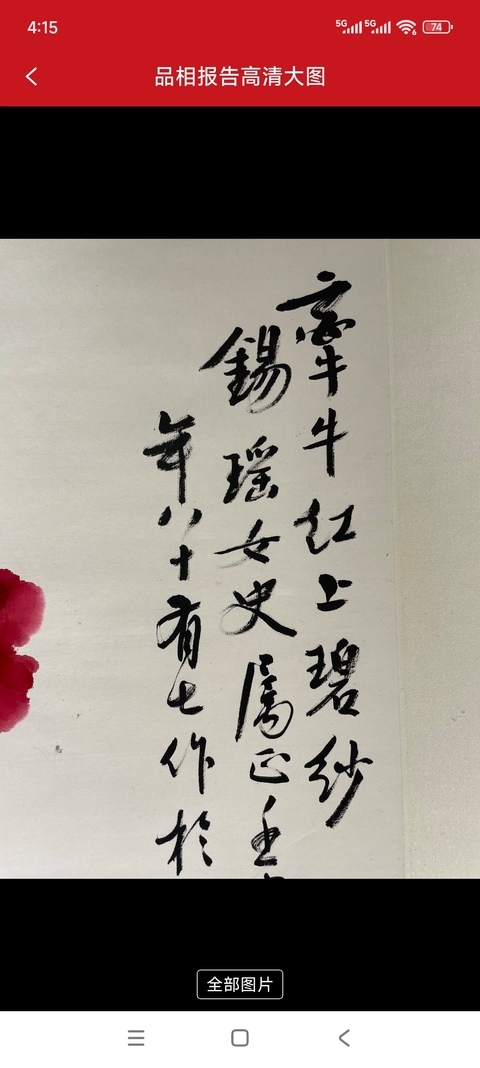 4:15
5G 5G 6 74
品相报告高清大图
牽牛牛红上碧纱
錫瑶女史属正壬
年八十有七作於
全部图片